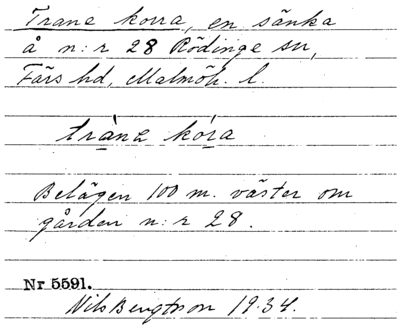 Trane korra, en sänka
å n:r 28 Rödinge sn,
Färs hd, Malmöh. l.
tràna kóra
Belägen 100 m. väster om
gården n:r 28.
Nr 5591.
Nils Bengtsson 1934.